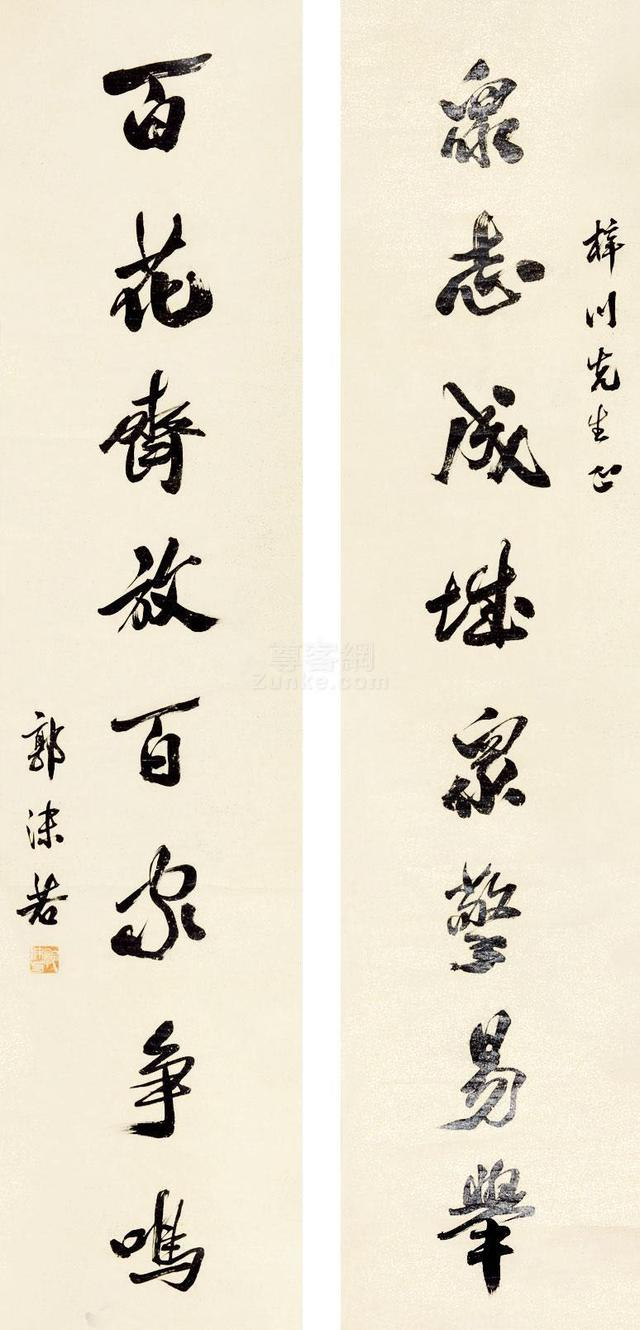 梓川先生正
衆志成城眾擎易舉
百花齊放百家争鳴
郭沫若
尊客網
Zunke.com